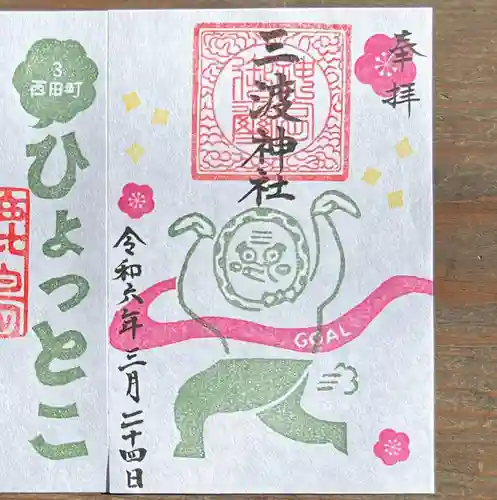 奉拝
三渡神社
令和六年三月二十四日
GOAL
3
西田町
ひょっとこ